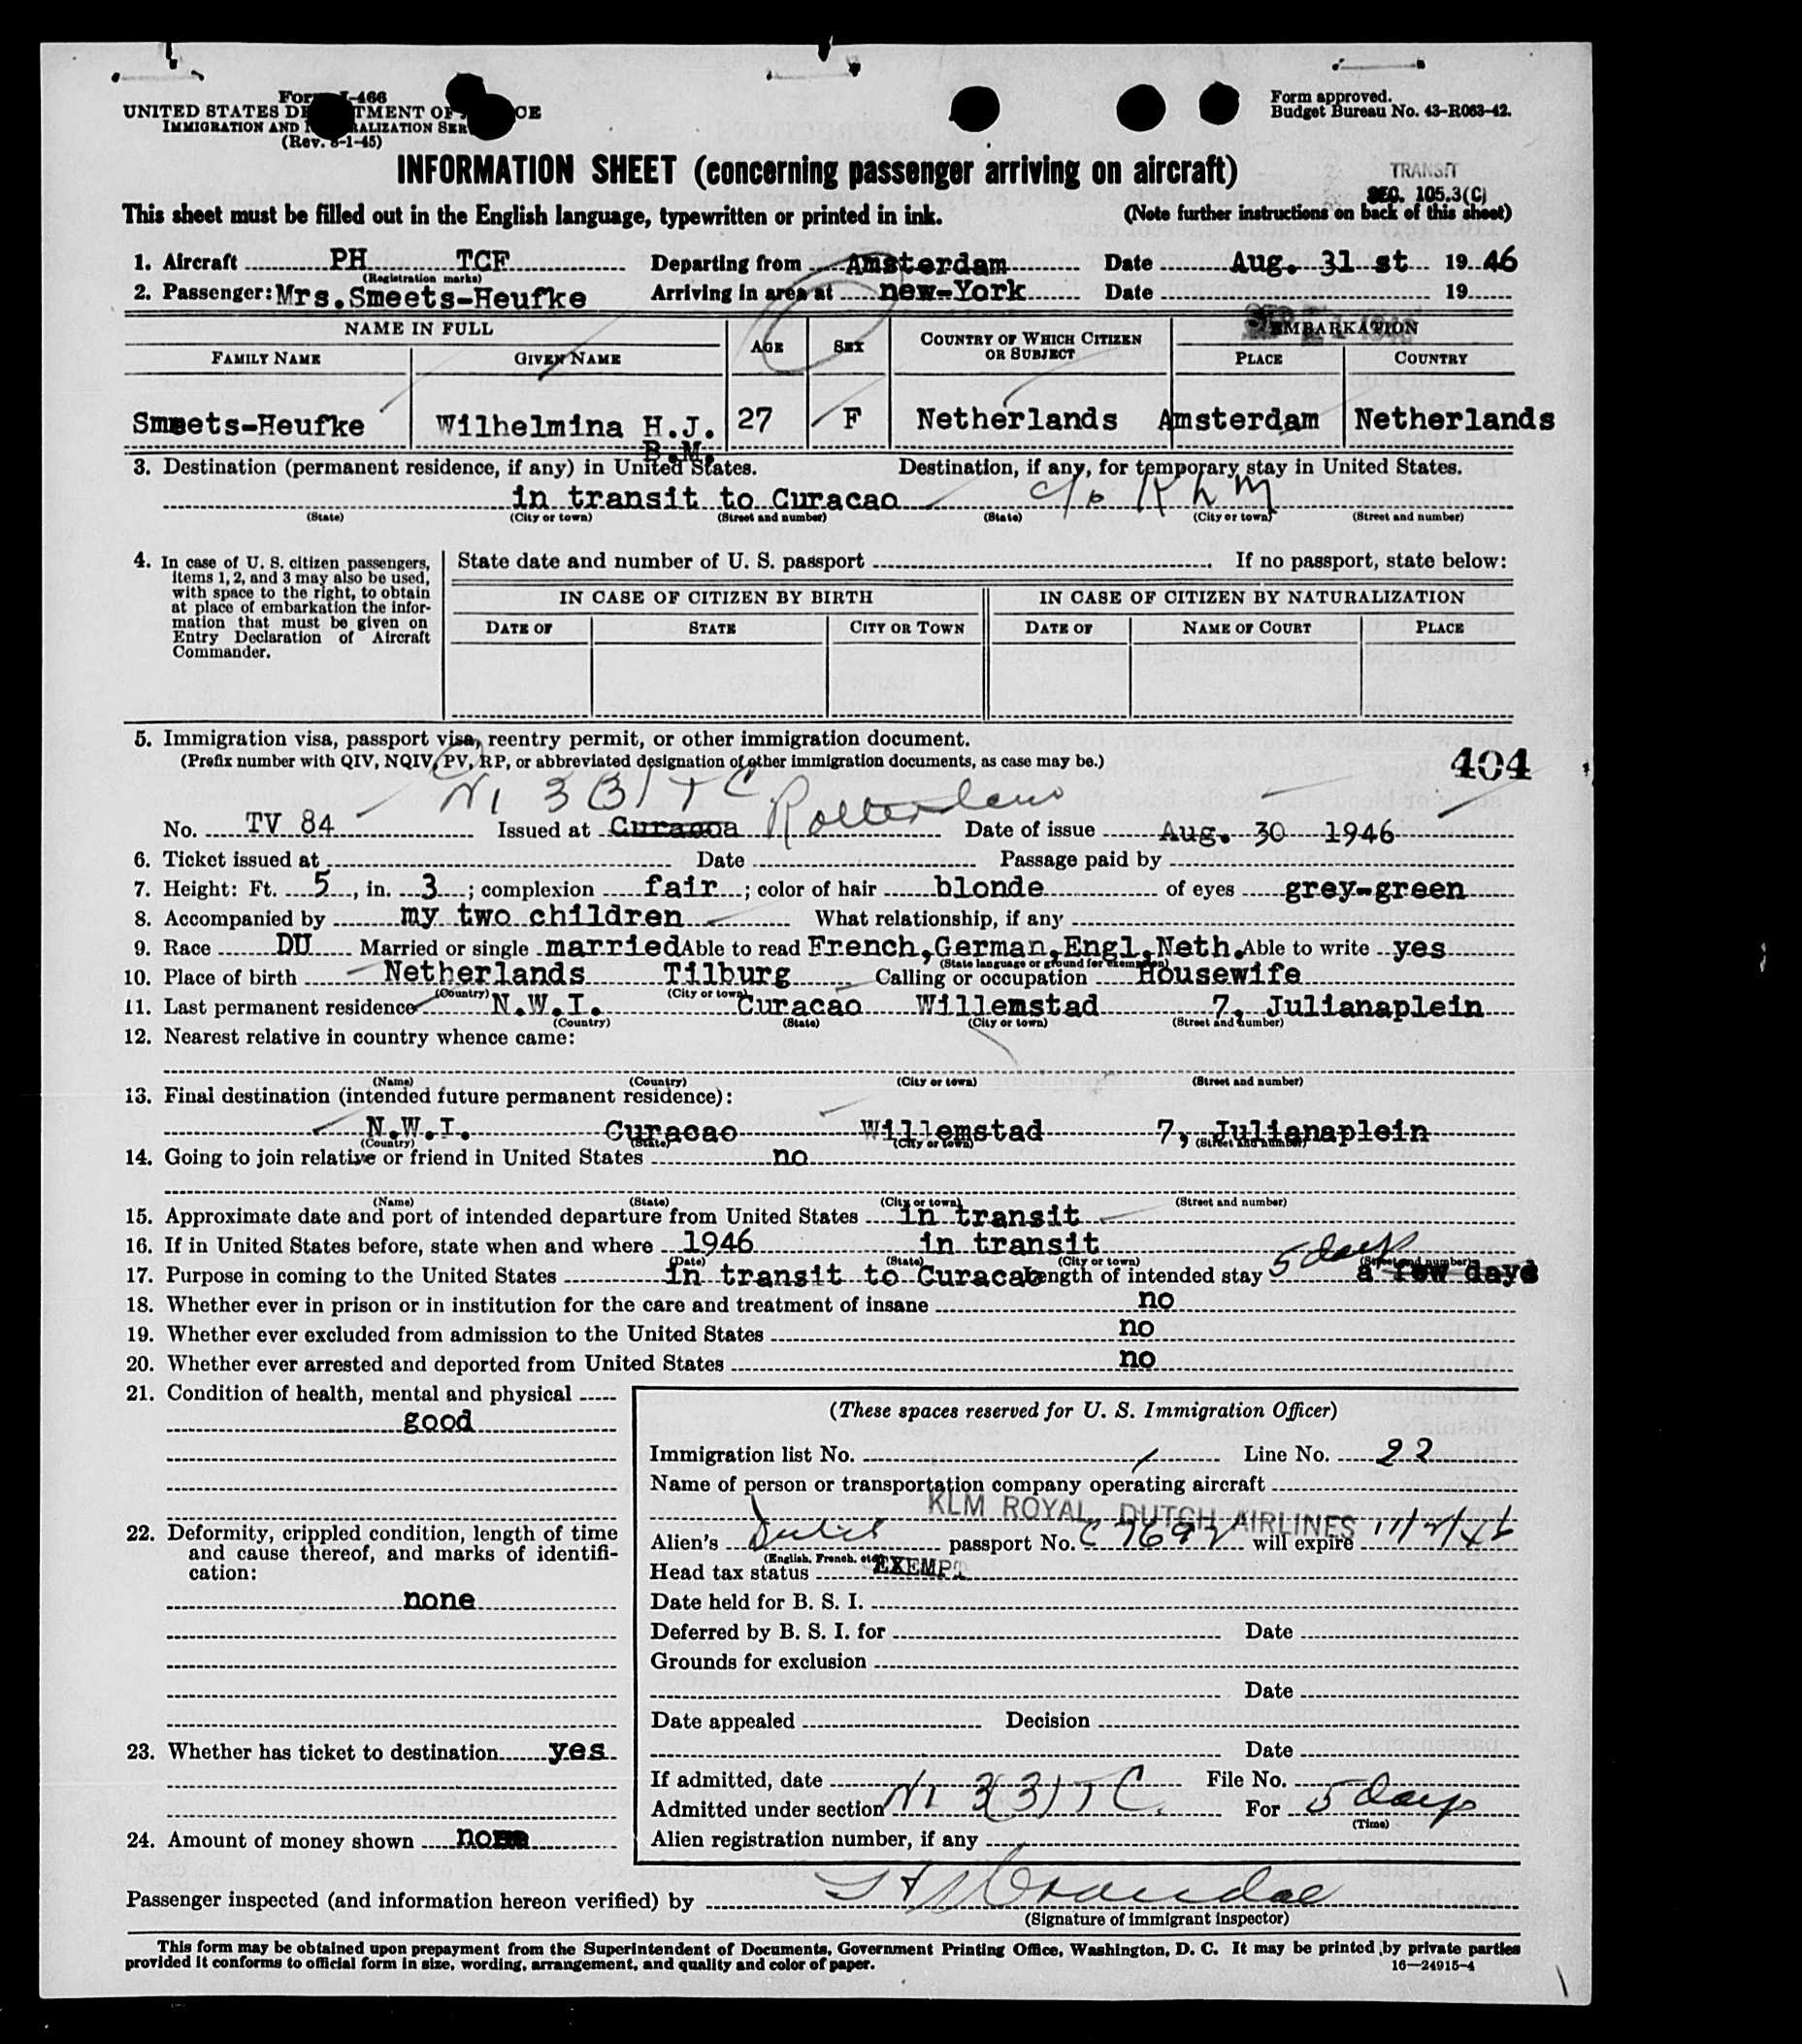 Form I-466
UNITED STATES DEPARTMENT OF JUSTICE
IMMIGRATION AND NATURALIZATION SERVICE
(Rev. 8-1-45)
Form approved.
Budget Bureau No. 43-R063-42.
INFORMATION SHEET (concerning passenger arriving on aircraft)
TRANSIT
SEC. 105.3(C)
This sheet must be filled out in the English language, typewritten or printed in ink.
(Note further instructions on back of this sheet)
1. Aircraft PH TCF Departing from Amsterdam Date Aug. 31 st 19 46
(Registration marks)
2. Passenger: Mrs.Smeets-Heufke Arriving in area at new-York Date 19
NAME IN FULL AGE SEX COUNTRY OF WHICH CITIZEN OR SUBJECT EMBARKATION
FAMILY NAME GIVEN NAME PLACE COUNTRY
Smeets-Heufke Wilhelmina H.J. 27 F Netherlands Amsterdam Netherlands
B.M.
3. Destination (permanent residence, if any) in United States. Destination, if any, for temporary stay in United States.
in transit to Curacao c/o K L M
(State) (City or town) (Street and number) (State) (City or town) (Street and number)
4. In case of U. S. citizen passengers, items 1, 2, and 3 may also be used, with space to the right, to obtain at place of embarkation the information that must be given on Entry Declaration of Aircraft Commander.
State date and number of U. S. passport If no passport, state below:
IN CASE OF CITIZEN BY BIRTH IN CASE OF CITIZEN BY NATURALIZATION
DATE OF STATE CITY OR TOWN DATE OF NAME OF COURT PLACE
5. Immigration visa, passport visa, reentry permit, or other immigration document.
(Prefix number with QIV, NQIV, PV, RP, or abbreviated designation of other immigration documents, as case may be.)
404
NI 3(3) TC
No. TV 84 Issued at Curacoa Rotterdam Date of issue Aug. 30 1946
6. Ticket issued at Date Passage paid by
7. Height: Ft. 5, in. 3; complexion fair; color of hair blonde of eyes grey-green
8. Accompanied by my two children What relationship, if any
9. Race DU Married or single married Able to read French,German,Engl.Neth. Able to write yes
(State language or ground for exemption)
10. Place of birth Netherlands Tilburg Calling or occupation Housewife
(Country) (City or town)
11. Last permanent residence N.W.I. Curacao Willemstad 7, Julianaplein
(Country) (State) (City or town) (Street and number)
12. Nearest relative in country whence came:
(Name) (Country) (City or town) (Street and number)
13. Final destination (intended future permanent residence):
N.W.I. Curacao Willemstad 7, Julianaplein
(Country) (State) (City or town) (Street and number)
14. Going to join relative or friend in United States no
(Name) (State) (City or town) (Street and number)
15. Approximate date and port of intended departure from United States in transit
16. If in United States before, state when and where 1946 in transit
(Date) (State) (City or town) (Street and number)
17. Purpose in coming to the United States in transit to Curacao Length of intended stay 5 days a few days
18. Whether ever in prison or in institution for the care and treatment of insane no
19. Whether ever excluded from admission to the United States no
20. Whether ever arrested and deported from United States no
21. Condition of health, mental and physical
good
22. Deformity, crippled condition, length of time and cause thereof, and marks of identification:
none
23. Whether has ticket to destination yes
24. Amount of money shown none
(These spaces reserved for U. S. Immigration Officer)
Immigration list No. 1 Line No. 22
Name of person or transportation company operating aircraft
KLM ROYAL DUTCH AIRLINES
Alien's Dutch passport No. will expire
(English, French, etc.)
Head tax status EXEMPT
Date held for B. S. I.
Deferred by B. S. I. for Date
Grounds for exclusion
Date
Date appealed Decision
Date
If admitted, date File No.
Admitted under section NI 3(3) TC. For 5 days
(Time)
Alien registration number, if any
Passenger inspected (and information hereon verified) by
(Signature of immigrant inspector)
This form may be obtained upon prepayment from the Superintendent of Documents, Government Printing Office, Washington, D. C. It may be printed by private parties
provided it conforms to official form in size, wording, arrangement, and quality and color of paper.
16—24915-4